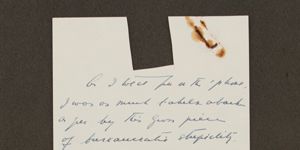 As I told you on the 'phone,
I was as much taken aback
as you by this gross piece
of bureaucratic stupidity.